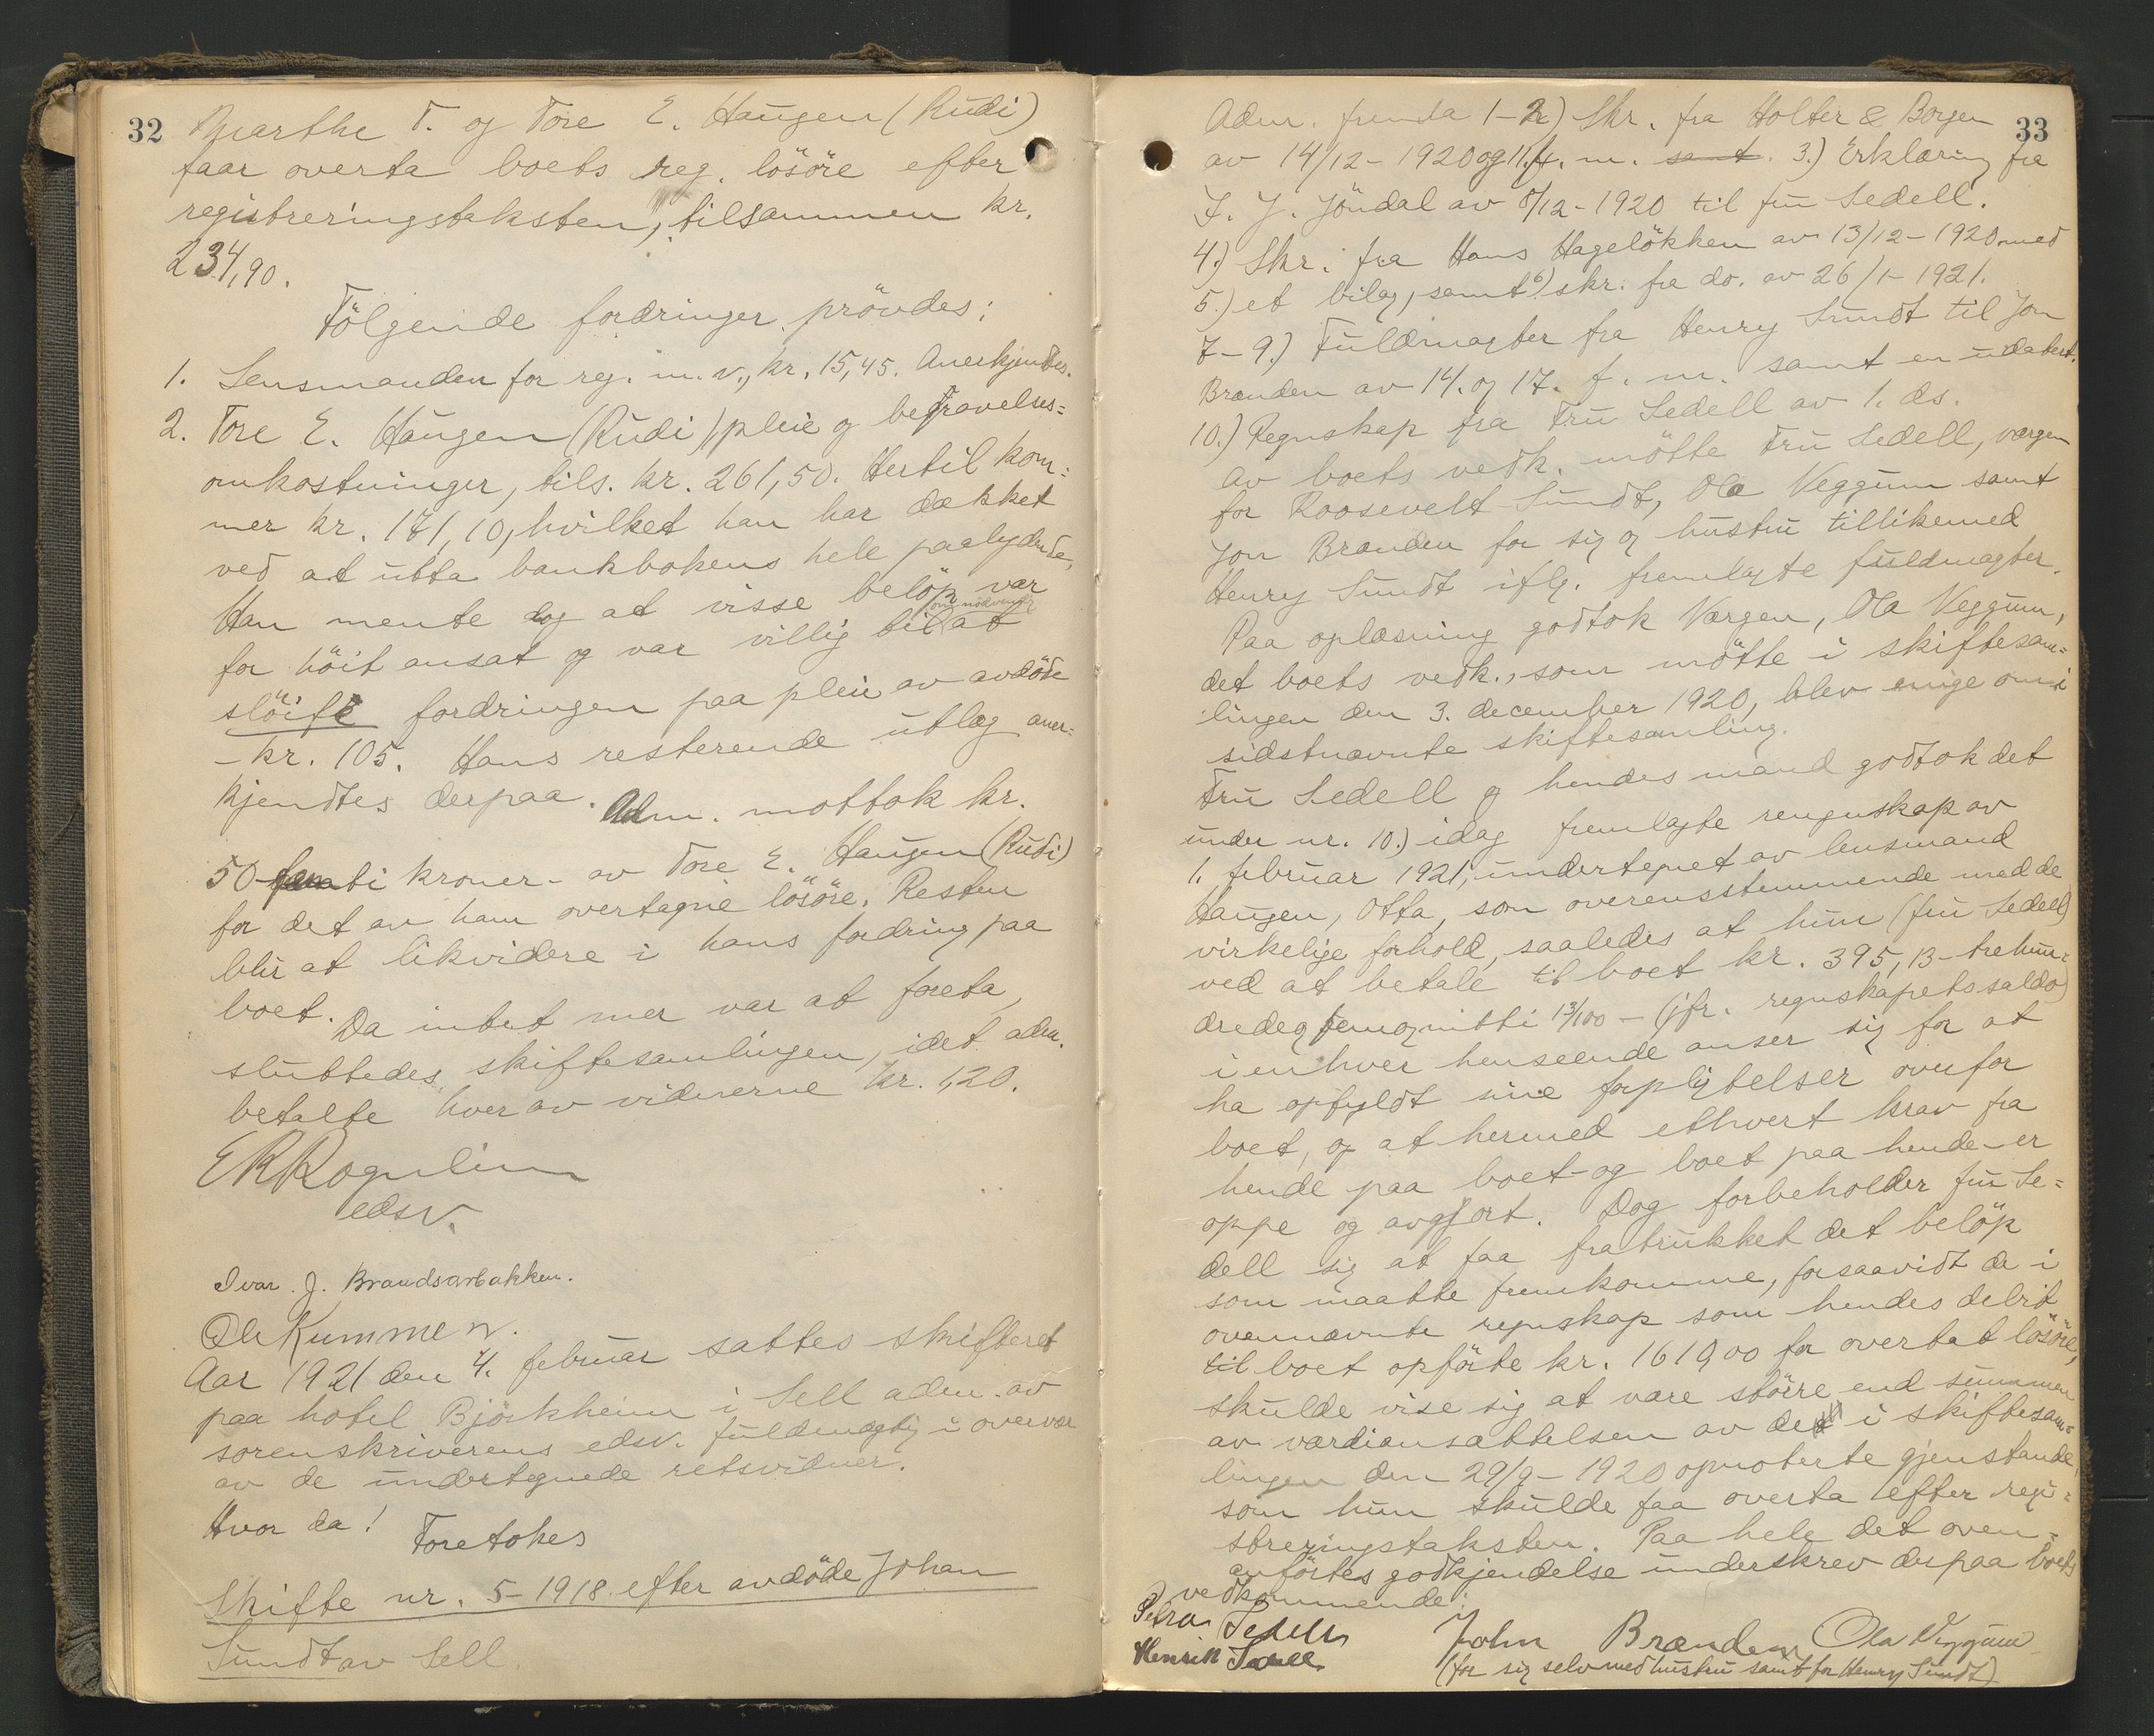 32
Marthe T. og Tore E. Haugen (Rudi)
faar overta boets reg. lösöre efter
registreringstaksten, tilsammen kr.
234,90.
Fölgende fordringer prövdes:
1. Lensmanden for reg. m.v., kr. 15,45. Anerkjendtes.
2. Tore E. Haugen (Rudi) pleie og begravelses=
omkostninger, tils. kr. 261,50. Hertil kom=
mer kr. 181,10, hvilket han har dækket
ved at utta bankbokens hele paalydende.
Han mente dog at visse belöp var
for höit ansat og var villig til (om nödvendig) at
slöife fordringen paa pleie av avdöde
- kr. 105. Hans resterende utlæg aner=
kjendtes derpaa. Adm. mottok kr.
50 - femti kroner - av Tore E. Haugen (Rudi)
for det av ham overtagne lösöre. Resten
blir at likvidere i hans fordring paa
boet. Da intet mer var at foreta,
sluttedes skiftesamlingen, idet adm.
betalte hver av vidnerne kr. 1,20.
edsv.
Ivar J. Brandsarbakken.
Ole Rummen.
Aar 1921 den 4. februar sattes skifteret
paa hotel Björkheim i Sell adm. av
sorenskriverens edsv. fuldmægtig i overvær
av de undertegnede retsvidner.
Hvor da!
Foretokes
Skifte nr. 5-1918 efter avdöde Johan
Sundt av Sell.
33
Adm. fremla 1-2) Skr. fra Holter & Borgen
av 14/12-1920 og 11. f. m. samt. 3.) Erklæring fra
J. J. Jöndal av 8/12-1920 til fru Sedell.
4.) Skr. fra Hans Hagelökken av 13/12-1920 med
5.) et bilag, samt 6) skr. fra do. av 26/1-1921.
7-9.) Fuldmagter fra Henry Sundt til Jon
Brænden av 14. og 17. f. m. samt en udatert.
10.) Regnskap fra Fru Sedell av 1. ds.
Av boets vedk. mötte Fru Sedell, værgen
for Roosevelt Sundt, Ola Veggum samt
Jon Brænden for sig og hustru tillikemed
Henry Sundt iflg. fremlagte fuldmagter.
Paa oplæsning godtok Værgen, Ola Veggum,
det boets vedk., som mötte i skiftesam=
lingen den 3. december 1920, blev enige om i
sidstnævnte skiftesamling.
Fru Sedell og hendes mand godtok det
under nr. 10.) idag fremlagte rengnskap av
1. februar 1921, undertegnet av lensmand
Haugen, Otta, som overensstemmende med de
virkelige forhold, saaledes at hun (fru Sedell)
ved at betale til boet kr. 395,13 - trehun=
dredeogfemognitti 13/100 - (jfr. regnskapets saldo)
i enhver henseende anser sig for at
ha opfyldt sine forpligtelser overfor
boet, og at hermed ethvert krav fra
hende paa boet - og boet paa hende - er
oppe og avgjort. Dog forbeholder fru Se=
dell sig at faa fratrukket det belöp
som maatte fremkomme, forsaavidt de i
ovennævnte regnskap som hendes debit
til boet opförte kr. 1619,00 for overtat lösöre,
skulde vise sig at være större end summen
av værdiansættelsen av de i skiftesam=
lingen den 29/9-1920 opnoterte gjenstande,
som hun skulde faa overta efter regi=
streringstaksten. Paa hele det oven=
anförtes godkjendelse underskrev derpaa boets
vedkommende:
Petra Sedell
John Brænden Ola Veggum
Henrik Sedell
(for sig selv med hustru samt for Henry Sundt)